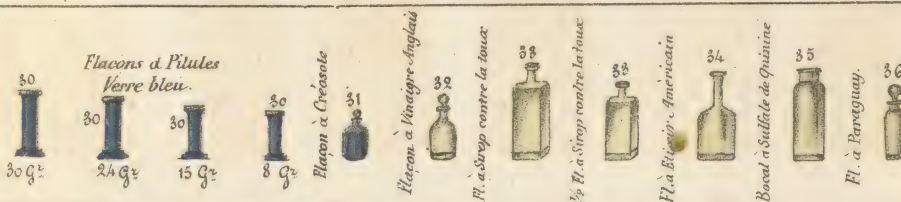 Flacons à Pilules
Verre bleu.
30
30
30
30
30 Gr
24 Gr
15 Gr
8 Gr
Flacon à Créosote
31
Flacon à Vinaigre Anglais
32
Fl. à Sirop contre la toux
33
½ Fl. à Sirop contre la toux
33
Fl. à Elixir Américain
34
Bocal à Sulfate de Quinine
35
Fl. à Paraguay.
36